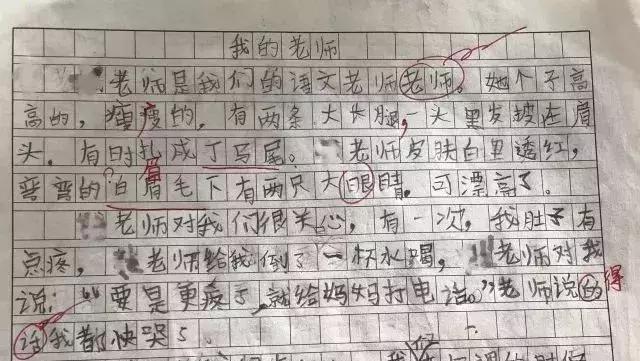 我的老师
老师是我们的语文老师老师。她个子高
高的，瘦瘦的，有两条大长腿，一头黑发披在眉
头，有时扎成了马尾。老师皮肤白里透红，
弯弯的白眉毛下有两只大眼睛。可漂亮了。
老师对我们很关心，有一次，我肚子有
点疼，老师给我倒了一杯水喝，老师对我
说：“要是更疼了，就给妈妈打电话。”老师说的得
话我都快哭了。